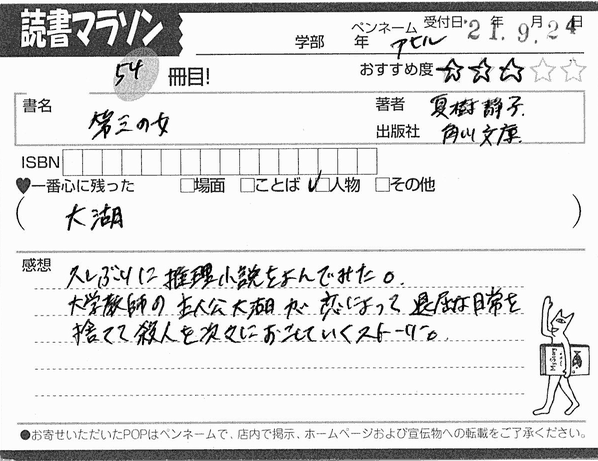 読書マラソン
学部 年 ペンネーム アヒル 受付日 '21年 9.月24日
54冊目!
おすすめ度 ☆☆☆☆☆
書名 第三の女
著者 夏樹静子
出版社 角川文庫
ISBN
♥一番心に残った □場面 □ことば ☑人物 □その他
(大湖)
感想
久しぶりに推理小説をよんでみた。
大学教師の主人公大湖が恋によって退屈な日常を
捨てて殺人を次々におこしていくストーリー。
●お寄せいただいたPOPはペンネームで、店内で掲示、ホームページおよび宣伝物への転載をご了承ください。